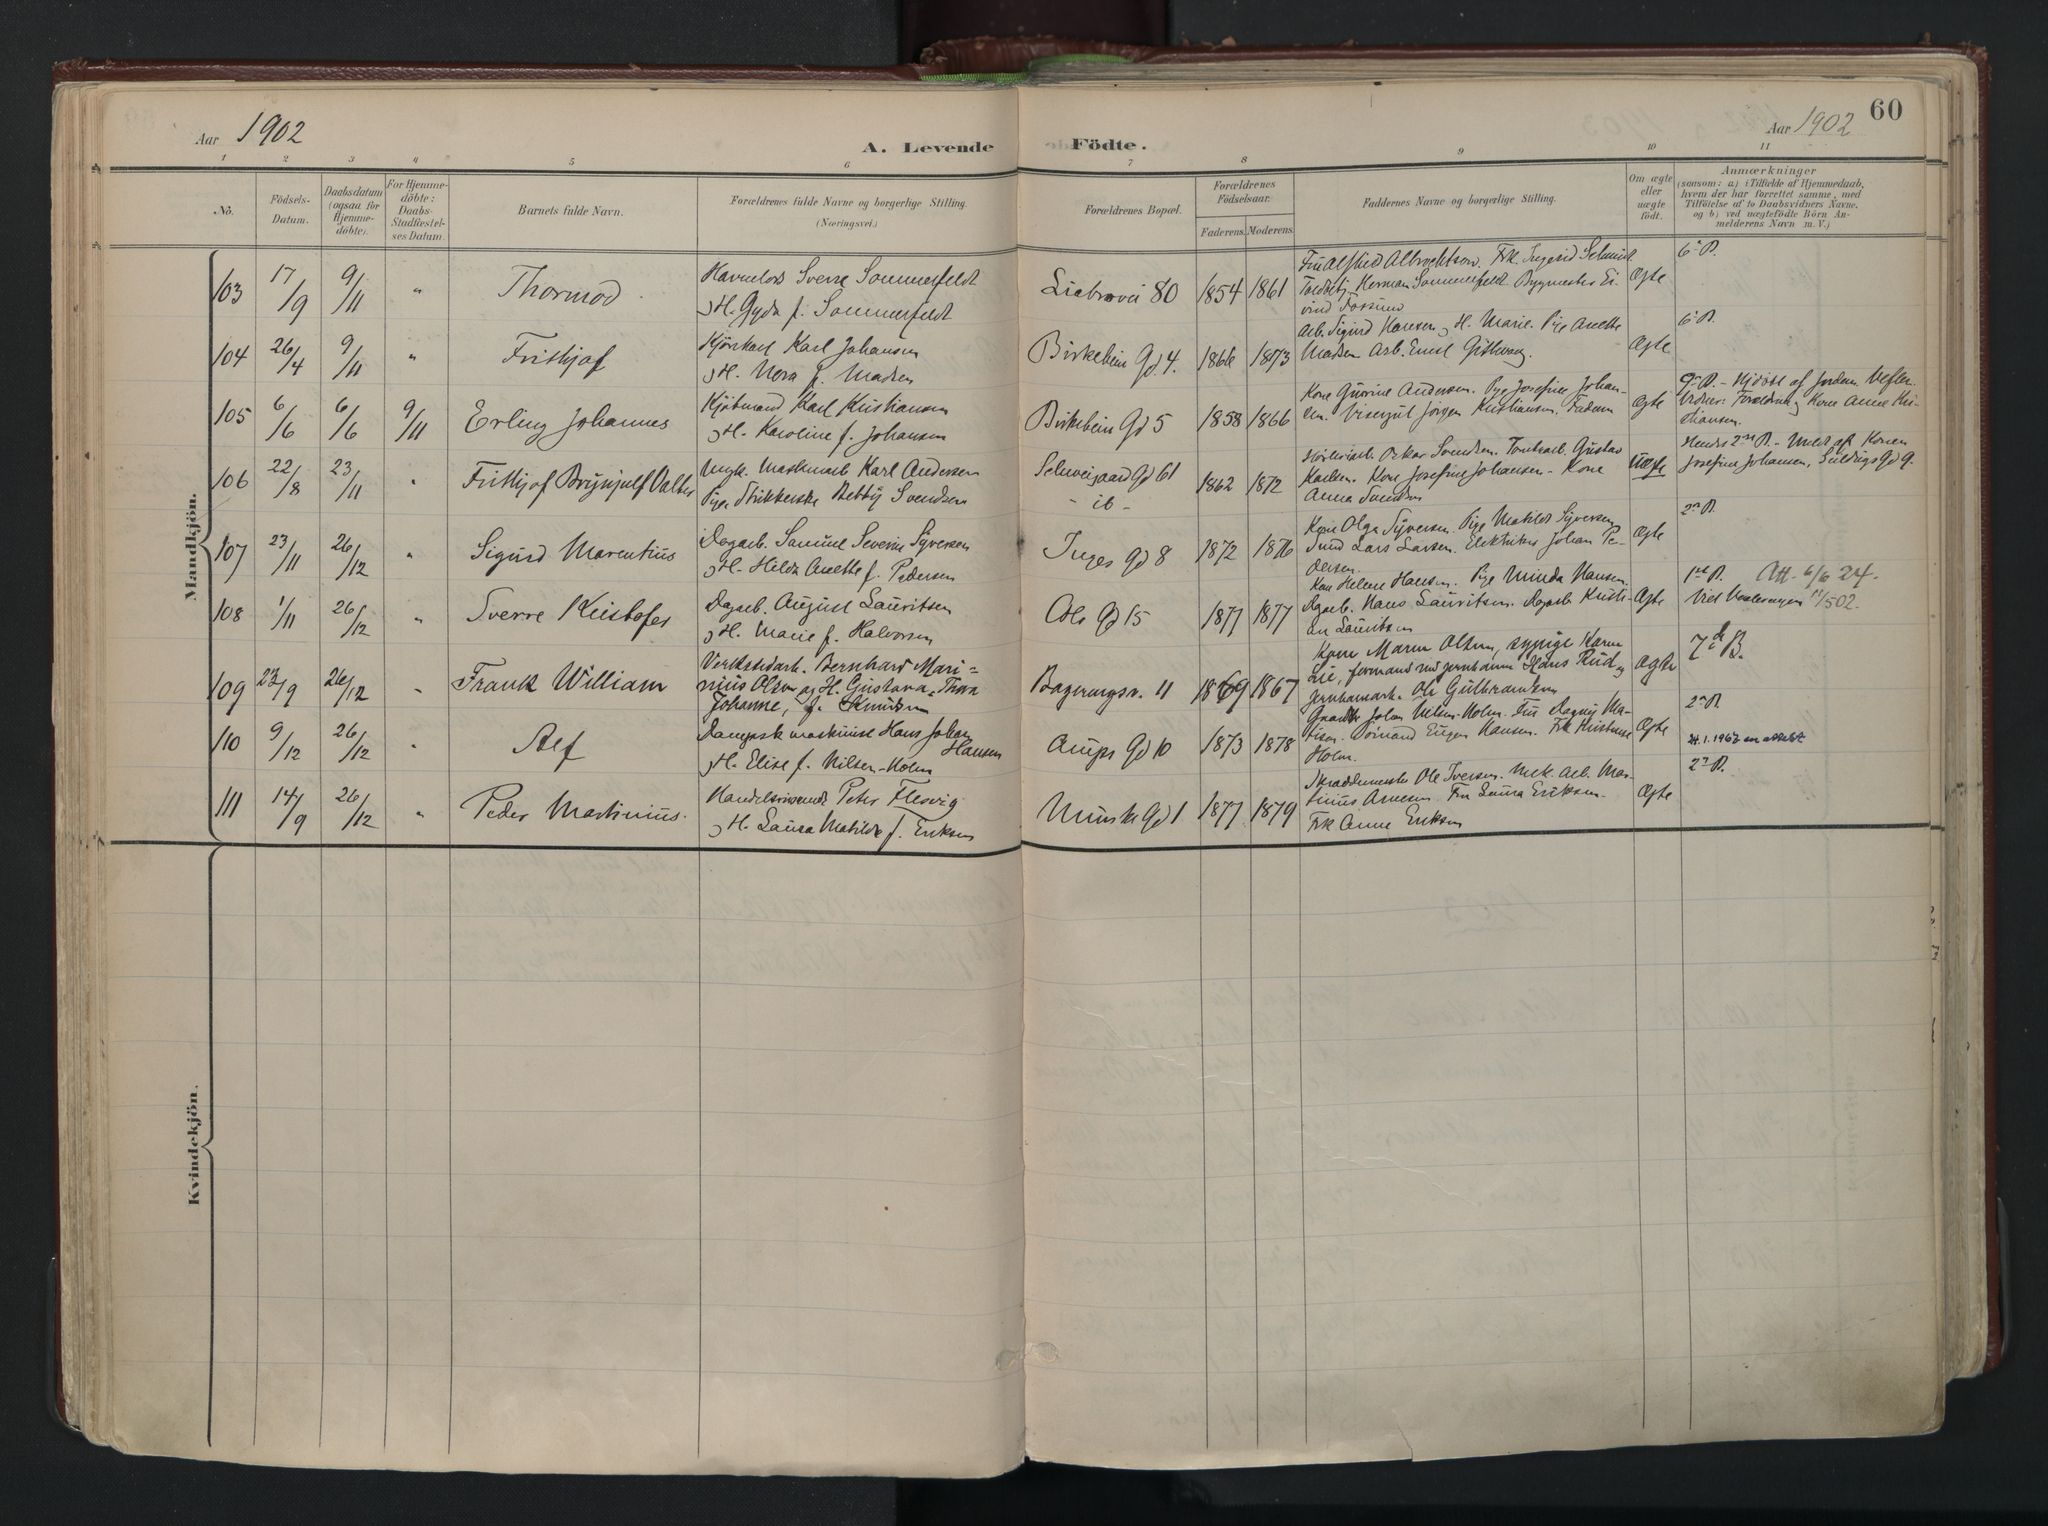 Aar 1902
A. Levende Födte.
Aar 1902
60
1 2 3 4 5 6 7 8 9 10 11
No.
Födsels-
Datum.
Daabsdatum
(ogsaa for
Hjemme-
döbte).
For Hjemme-
döbte:
Daabs-
Stadfæstel-
ses Datum.
Barnets fulde Navn.
Forældrenes fulde Navne og borgerlige Stilling.
(Næringsvei.)
Forældrenes Bopæl.
Forældrenes
Födselsaar.
Faderens. Moderens.
Faddernes Navne og borgerlige Stilling.
Om ægte
eller
uægte
født.
Anmærkninger
(saasom: a) i Tilfælde af Hjemmedaab,
hvem der har forrettet samme, med
Tilföielse af to Daabsvidners Navne,
og b) ved uægtefödte Börn An-
melderens Navn m. V.)
Mandkjön.
103 17/9 9/11 " Thormod
Sverre Sommerfeldt
H. Gyda f. Sommerfeldt
Liabrovei 80 1854 1861
Albrechtson. Frk. Ingerid
Herman Sommerfeldt. Bygmester Ei-
vind Fossum
Ægte
104 26/4 9/11 " Frithjof
Kjørekarl Karl Johansen
H. f. Madsen
Birkebein Gd. 4. 1866 1873
Arb. Sigurd Hansen H. Marie. Pige Anette
Madsen Arb. Emil
Ægte
105 6/6 6/6 9/11 Erling Johannes
Kjøbmand Karl Kristiansen
H. Karoline f. Johansen
Birkebein Gd 5 1858 1866
Kone Gurine Andersen. Pige Josefine Johan-
sen. Visergut Jörgen Kristiansen. Faderen
Ægte
9 B. - Hjdøbt af Jordm.
Vidner: Forældrene Kone Anne Kri-
stiansen.
106 22/8 23/11 " Frithjof Brynjulf Valter
Ungk. Maskinarb Karl Andersen
Pige Strikkerske Bebby Svendsen
Schweigaard Gd 61
- ib -
1862 1872
Oskar Svendsen. Gustav
Karlsen. Kone Josefine Johansen - Kone
Anna Svendsen
Uægte
Hendes 2 B. - Meldt af Konen
Josefine Johansen, Gd 9.
107 23/11 26/12 " Sigurd Marentius
Dagarb. Samuel Severin Syversen
H. Hilda Anette f. Pedersen
Inges Gd 8 1872 1876
Kone Olga Syversen. Pige Matild Syversen
Lars Larsen. Elektriker Johan Pe-
dersen.
Ægte
108 1/11 26/12 " Sverre Kristofer
Dagarb. August Lauritsen
H. Marie f. Halvorsen
Ols Gd 15 1877 1877
Kone Helene Hansen. Pige Minda Hansen.
Dagarb. Hans Lauritsen. Dagarb Kristi-
an Lauritsen
Ægte
1ste B. Att. 6/6 24.
109 23/9 26/12 " Frank William
Verkstedarb. Bernhard Mari-
nius Olsen og H. Gustava Thora
Johanne, f. Knudsen
11 1869 1867
Kone Maren Olsen, sypige Karen
Lie, formand ved jernbanen Hans Rud,
jernbanearb. Ole Gulbrandsen
ægte
7de B.
110 9/12 26/12 " Alf
maskinist Hans Johan
Hansen
H. Elise f. Nilsen-Holm
Gd 10 1873 1878
Johan Nilsen-Holm. Fru Dagny Ma-
Eugen Hansen. Frk Kristense
Holm.
Ægte
24.1.1967 en attest
111 14/9 26/12 " Peder Martinius.
Handelsreisende Peter Flesvig
H. Laura Matilde f. Eriksen
Munke Gd 1 1877 1879
Skræddermester Ole Iversen. Mek. Arb. Mar-
tinius Arnesen. Fru Laura Eriksen.
Frk Anne Eriksen
Ægte
Kvindekjön.